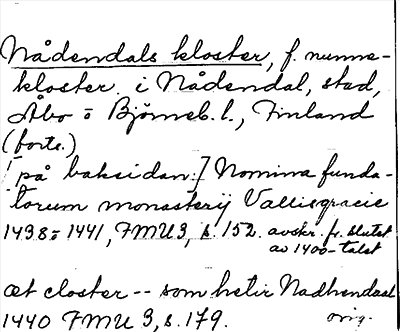 Nådendals kloster, f. nunne-
kloster i Nådendal, stad,
Åbo o Björneb. l., Finland
(forts.)
[på baksidan:] Nomina funda-
torum monasterij Vallisgracie
1438 o 1441, FMU 3, s. 152. avskr. fr. slutet
av 1400-talet
æt closter -- som hetir Nadhendaal
1440 FMU 3, s. 179. orig.